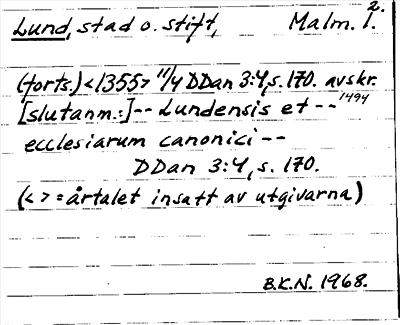 Lund, stad o. stift, Malm. l. 2.
(forts.) <1355> 11/4 DDan 3:4, s. 170. avskr. 1494
[slutanm.:] -- Lundensis et --
ecclesiarum canonici --
DDan 3:4, s. 170.
(< > = årtalet insatt av utgivarna)
B.K.N. 1968.